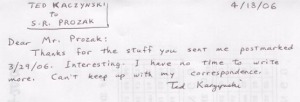 TED KACZYNSKI
to
S.R. PROZAK
4/13/06
Dear Mr. Prozak:
Thanks for the stuff you sent me postmarked
3/29/06. Interesting. I have no time to write
more. Can't keep up with my correspondence.
Ted Kaczynski